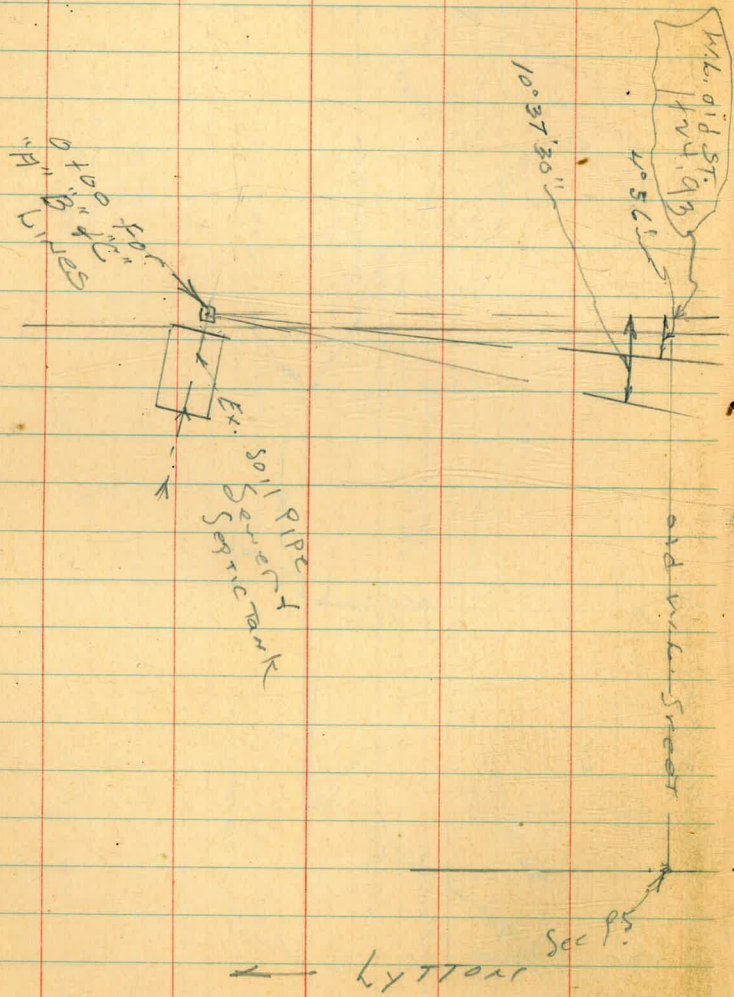 W.L. old St.
1+24.93
4° 56'
10° 37' 30"
0+00 for
"A" "B" & "C"
Lines
Ex. Soil Pipe
Sewer &
Septic Tank
old W.L. Street
Sec 95
Lytton